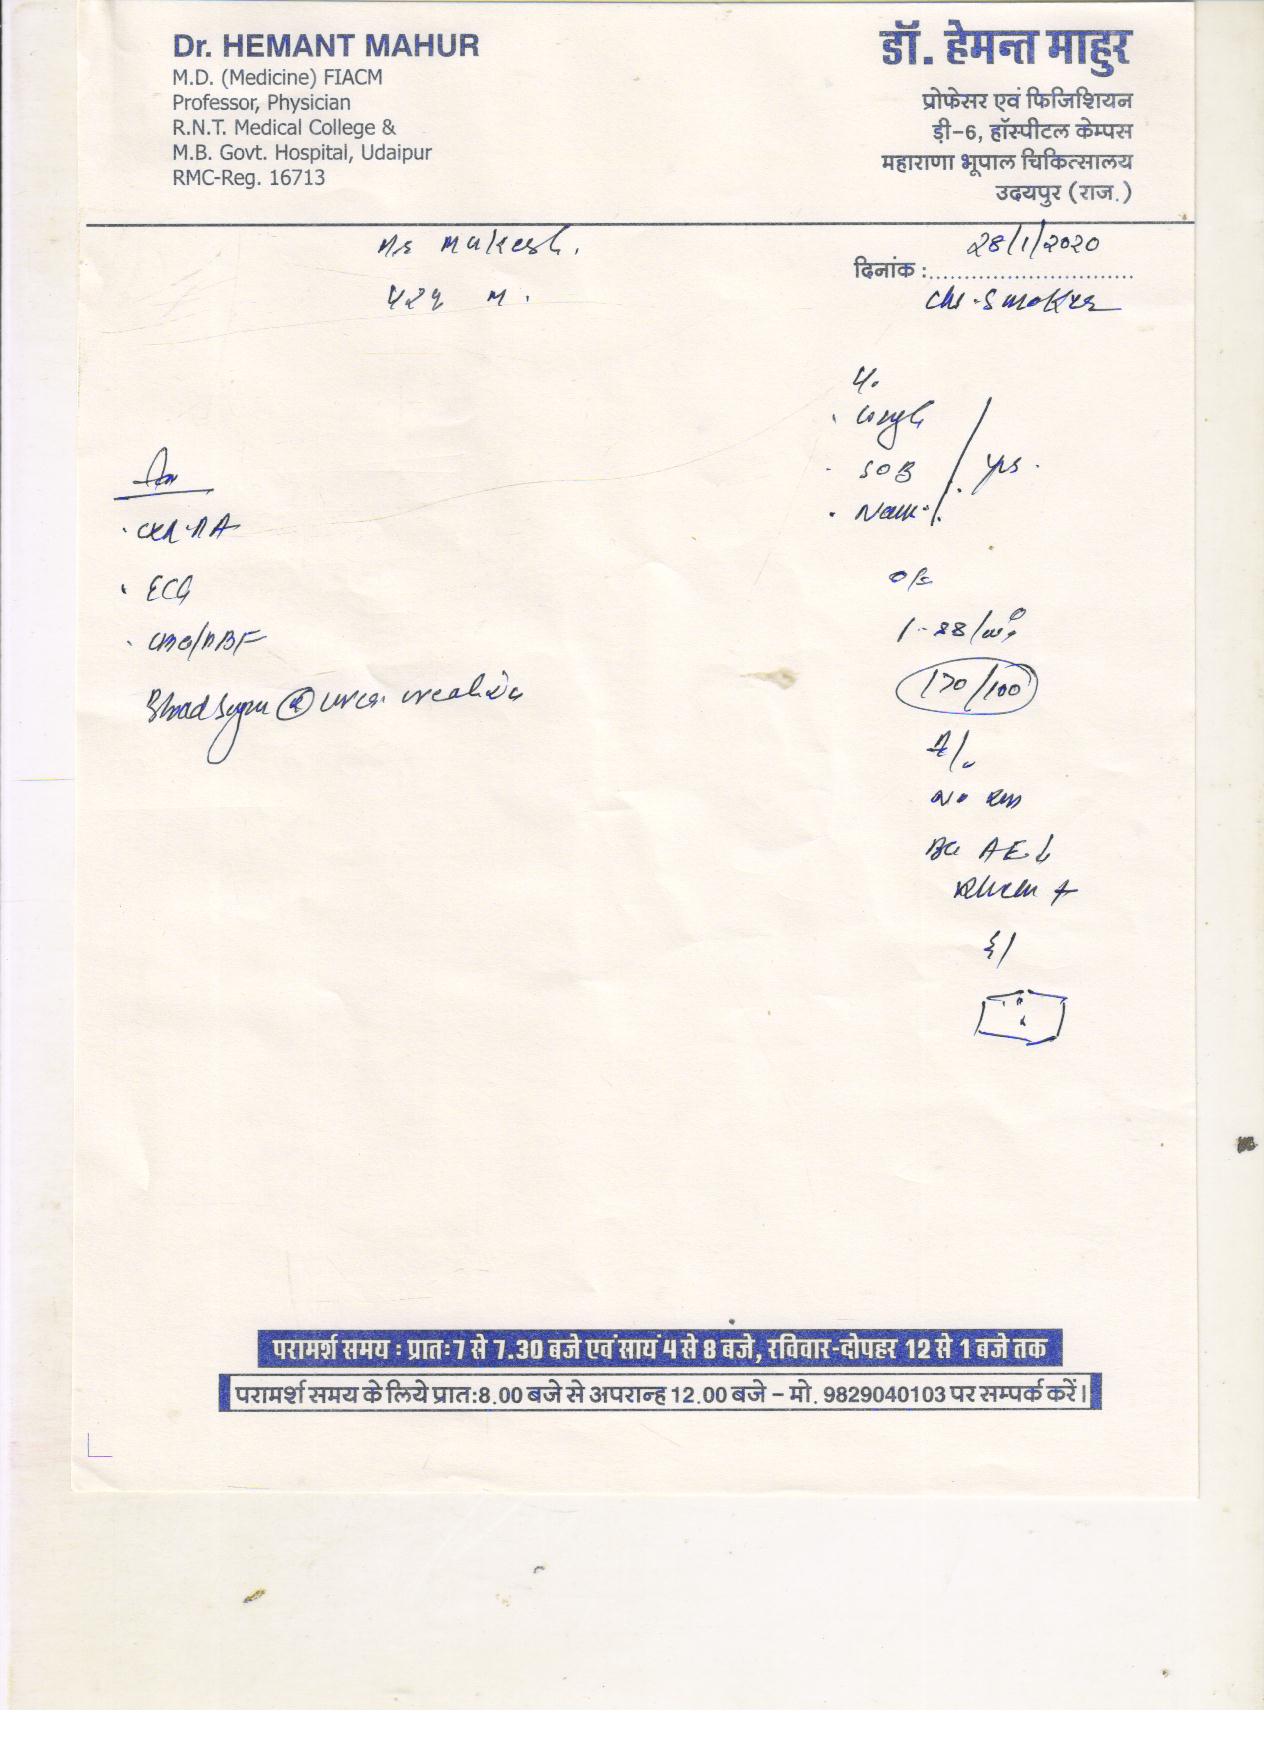 Dr. HEMANT MAHUR
M.D. (Medicine) FIACM
Professor, Physician
R.N.T. Medical College &
M.B. Govt. Hospital, Udaipur
RMC-Reg. 16713
डॉ. हेमन्त माहुर
प्रोफेसर एवं फिजिशियन
ड़ी-6, हॉस्पीटल केम्पस
महाराणा भूपाल चिकित्सालय
उदयपुर (राज.)
Mr Mukesh.
28/1/2020
दिनांक :.............................
42y M.
Chr. Smoker
Cough
SOB
yrs.
CXR-PA
ECG
CBC/PBF
O/E
88/m
170/100
Blood Sugar
Urea
AE
परामर्श समय : प्रातः 7 से 7.30 बजे एवं सायं 4 से 8 बजे, रविवार-दोपहर 12 से 1 बजे तक
परामर्श समय के लिये प्रात:8.00 बजे से अपरान्ह 12.00 बजे – मो. 9829040103 पर सम्पर्क करें।